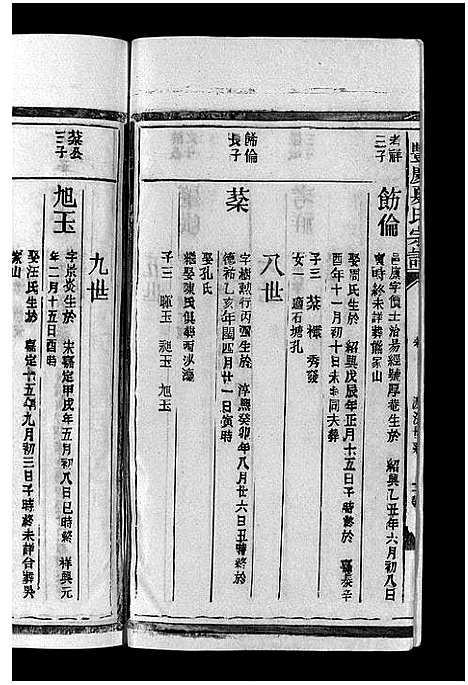 豐慶夏氏宗譜
老祥
二子
飭倫
邑庠字價士治易經號厚菴生於 紹興乙丑年六月初八日
寅時終未詳葬熊家山
娶周氏生於 紹興戊辰年正月十五日子時終於 嘉泰辛
酉年十一月初十日未時同夫葬
子三 棻 樨 秀發
女一 適石塘孔
八世
飭倫
長子
棻
字樹勲行丙四生於 淳熙癸卯年八月廿六日丑時終於
德祐乙亥年閏四月廿一日寅時
娶孔氏
繼娶陳氏俱葬
子三 暉玉 昶玉 旭玉
九世
棻公
三子
旭玉
字景炎生於 宋嘉定甲戌年五月初八日巳時終 祥興元
年二月十五日酉時
娶汪氏生於 嘉定十五年九月初三日子時終未詳合葬吳
家山